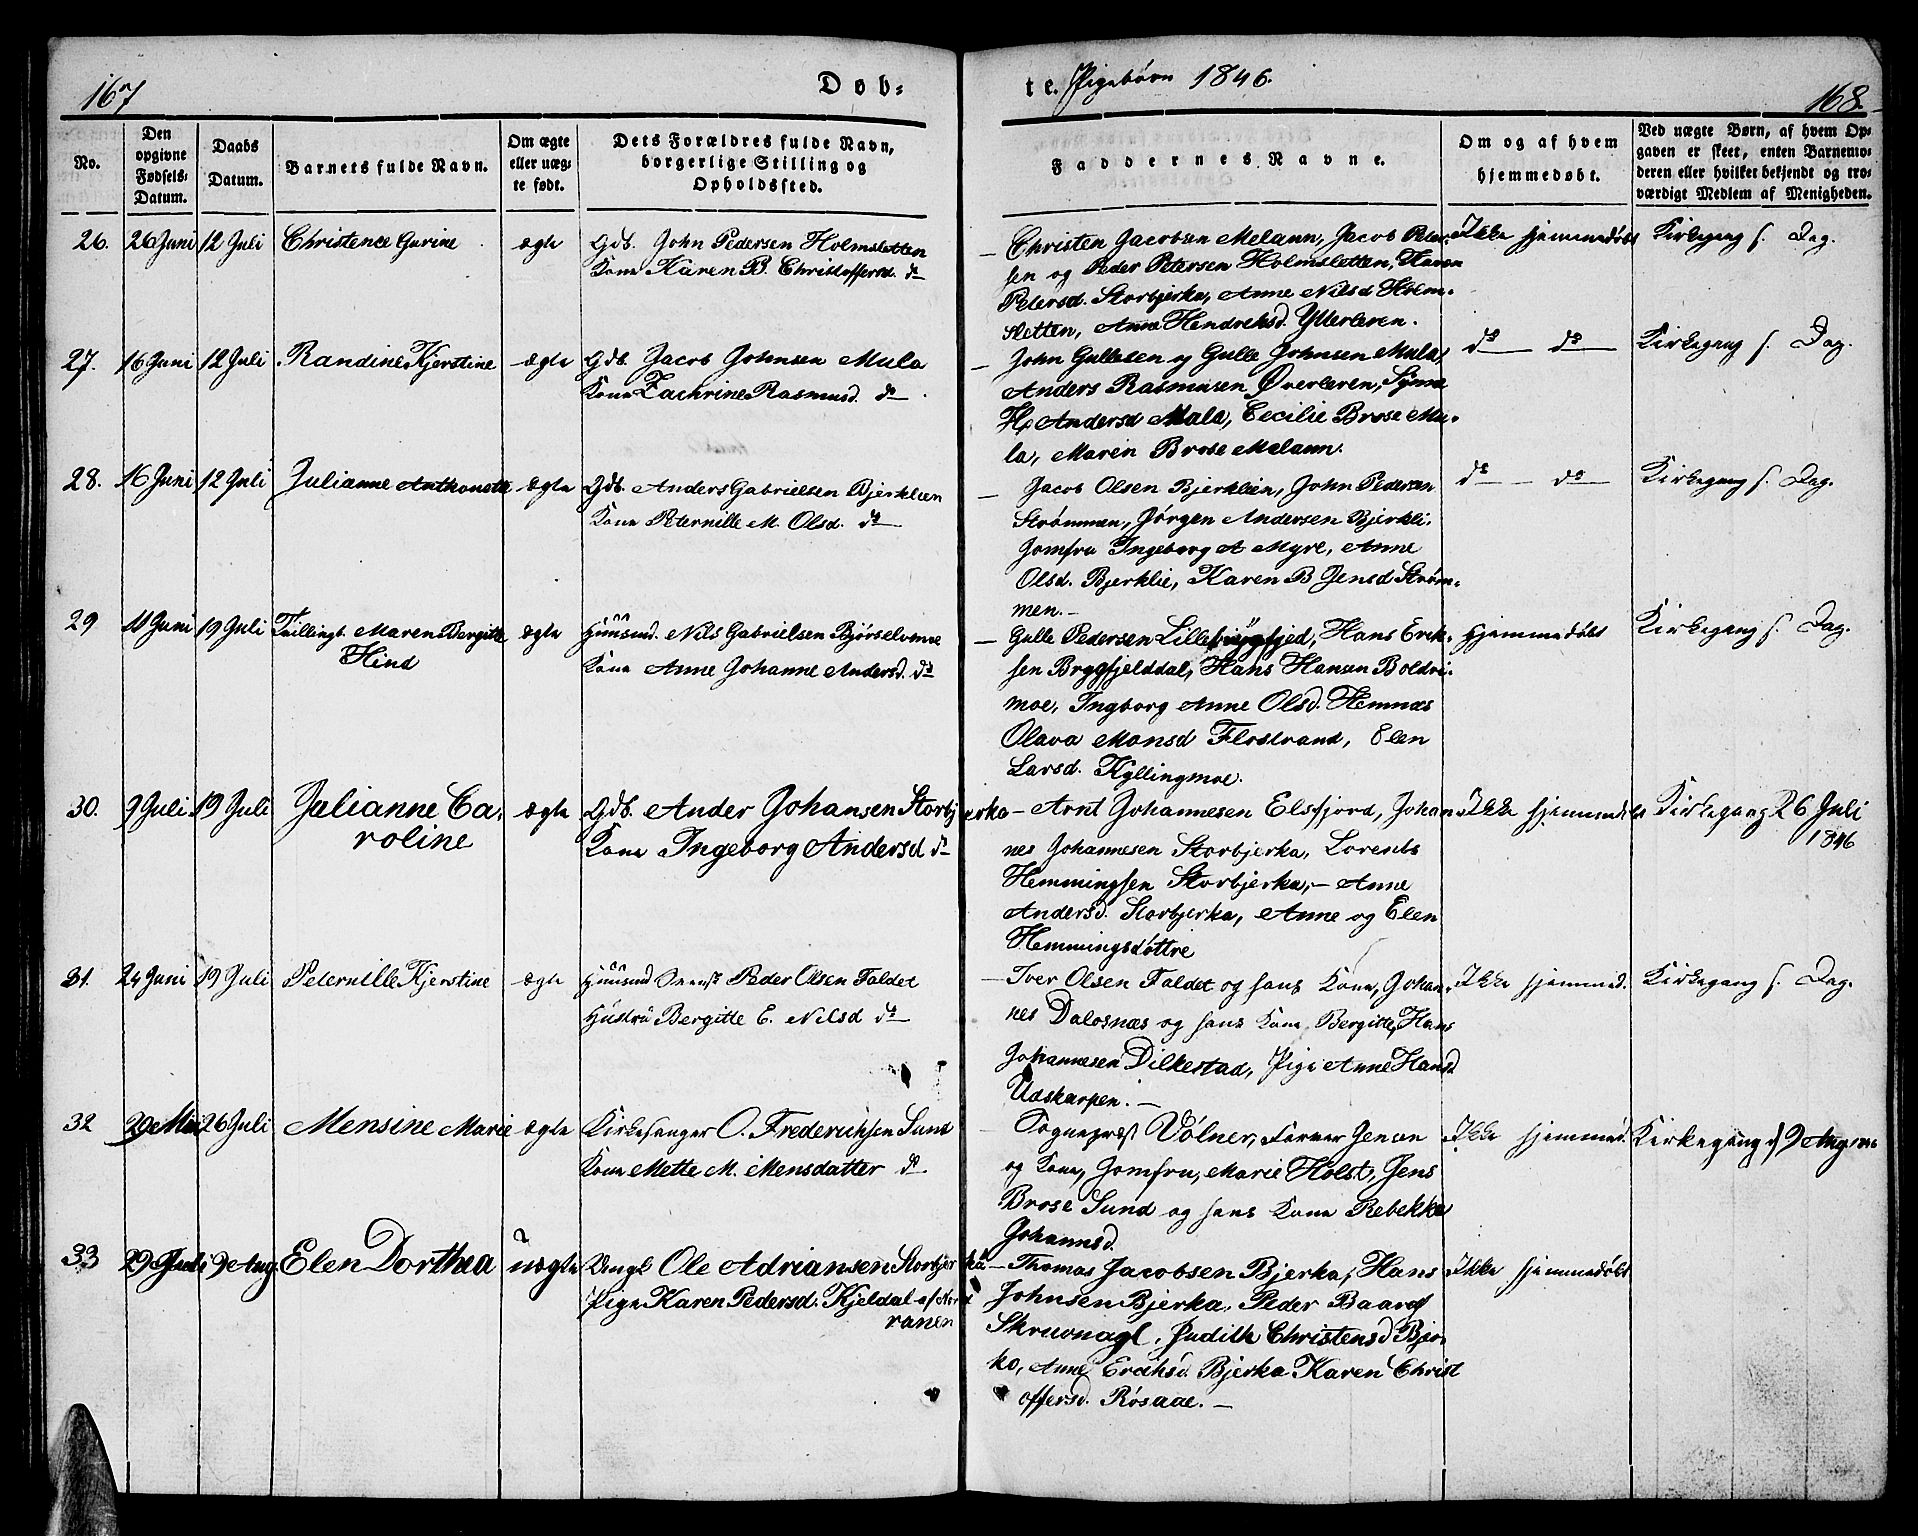 167
Døb-
te. Pigebörn 1846.
168.
No.
Den
opgivne
Fødsels-
Datum.
Daabs
Datum.
Barnets fulde Navn.
Om ægte
eller uæg-
te født.
Dets Forældres fulde Navn,
borgerlige Stilling og
Opholdssted.
Faddernes Navne.
Om og af hvem
hjemmedøbt.
Ved uægte Børn, af hvem Op-
gaven er skeet, enten Barnemo-
deren eller hvilket bekjendt og tro-
værdigt Medlem af Menigheden.
26. 26 Juni 12 Juli Christence Gurine ægte Gdb. John Pedersen Holmsletten
Kone Karen B. Christoffersd. do
Christen Jacobsen Melann, Jacob Peter-
sen og Peder Petersen Holmsletten, Karen
Petersd. Storbjerka, Anne Nilsd Holm-
sletten, Anne Hendreksd. Ytterleren.
Ikke hjemmedöbt Kirkegang s. Dag.
27. 16 Juni 12 Juli Randine Kjerstine ægte Gdb. Jacob Johnsen Mula
Kone Zachrine Rasmusd. do
John Gullesen og Gulle Johnsen Mula,
Anders Rasmusen Øverleren, Synne
H. Andersd Mula, Cecilie Brose Mu-
la, Maren Brose Melann.
do do Kirkegang s. Dag.
28. 16 Juni 12 Juli Julianne Anthonette ægte Gdb. Anders Gabrielsen Bjerklien
Kone Peternille M. Olsd. do
Jacob Olsen Bjerklien, John Pedersen
Strømmen, Jörgen Andersen Bjerkli.
Jomfru Ingeborg A Myre, Anne
Olsd. Bjerklie, Karen B Jensd Strøm-
men.
do do Kirkegang s. Dag.
29 11 Juni 19 Juli Tvillingb. Maren Bergitte ægte Huusmd. Nils Gabrielsen Bjørselvmoe
Hind Kone Anne Johanne Andersd. do
Gulle Pedersen Lillebryggfjed, Hans Erik-
sen Bryggfjelddal, Hans Hansen Boldri-
moe, Ingborg Anne Olsd. Hemnæs
Olava Monsd Flostrand, Elen
Larsd. Kyllingmoe.
Hjemmedøbt Kirkegang s. Dag.
30. 9 Juli 19 Juli Julianne Ca- ægte Gdb. Ander Johansen Storbjerka
roline Kone Ingeborg Andersd do
Arnt Johannesen Elsfjord, Johan-
nes Johannesen Storbjerka, Lorents
Hemmingsen Storbjerka, Anne
Andersd. Storbjerka, Anne og Elen
Hemmingsdöttre
Ikke hjemmedö Kirkegang 26 Juli
1846
31. 24 Juni 19 Juli Peternille Kjerstine ægte Huusmd Peder Olsen Faldet
Hustru Bergitte E. Nilsd do
Iver Olsen Faldet og hans Kone, Johan-
nes Dalosnæs og hans Kone Bergitte, Hans
Johannesen Dilkestad, Pige Anne Hansd
Udskarpen.
Ikke hjemmed. Kirkegang s. Dag.
32 29 Mai 26 Juli Mensine Marie ægte Kirkesanger O. Frederichsen Sund
Kone Mette M. Mensdatter do
Sognepræst Völner, Jensen
og Kone, Jomfru, Marie Holst, Jens
Brose Sund og hans Kone Rebekke
Johannsd.
Ikke hjemmed. Kirkegang d 9 Aug
33 29 Juli 9 Aug. Elen Dorthea uægte Ungk Ole Adriansen Storbjerka
Pige Karen Pedersd. Kjeldal af Nor
ranen
Thomas Jacobsen Bjerka, Hans
Johnsen Bjerka, Peder Baards
Skruvnagl, Judith Christensd Bjer-
ka, Anne Eriksd. Bjerka Karen Christ
offersd. Rösaae.
Ikke hjemmedøbt